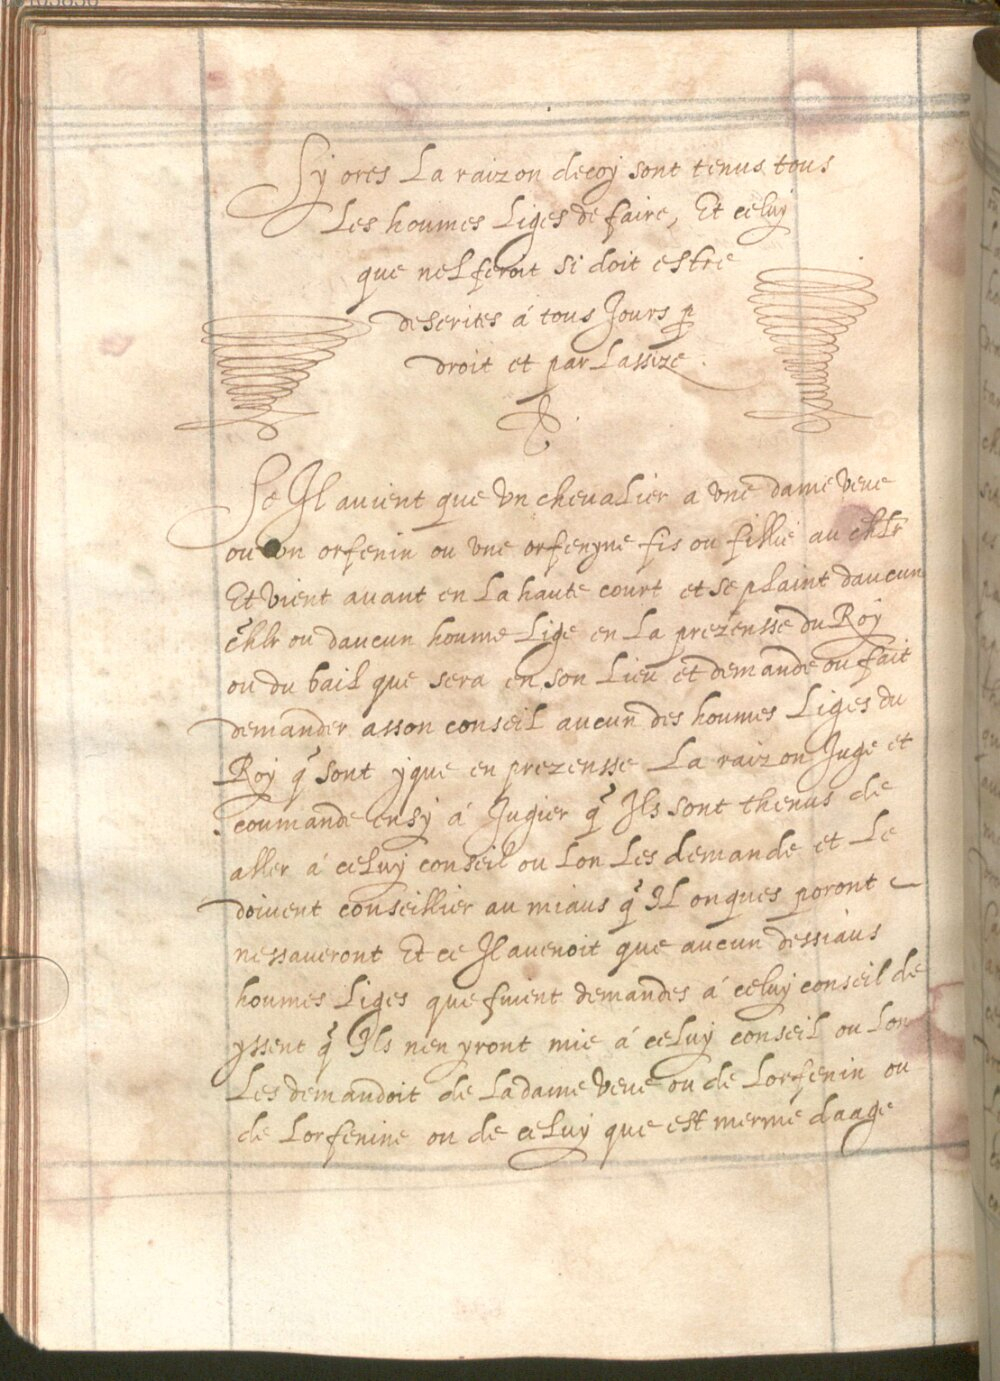 Sy ores La raizon decoy sont tenus tous
Les houmes Liges de faire, Et celuy
que nel feroit si doit estre
descrites á tous Jours p
droit et par Lassize
Se Il auient que vn chevalier a vne dame veue
ou vn orfenin ou vne orfenyne fis ou fillie au chlr
Et vient auant en La haute court et se plaint daucun
chlr ou daucun houme Lige en La prezensse du Roy
ou du bail que sera en son Lieu et demande ou fait
demander asson conseil aucun des houmes Liges du
Roy q̃ sont yque en prezensse La raizon Juge et
coumande ensy á Jugier q̃ Ils sont thenus de
aller á celuy conseil ou Lon Les demande et Le
doiuent conseillier au miaus q̃ Il onques poront
nessaueront Et ce Il auenoit que aucun dessiaus
houmes Liges que fuient demandes á celuy conseil de
yssent q̃ Ils nen yront mie á celuy conseil ou Lon
Les demandoit de La dame veue ou de Lorfenin ou
de Lorfenine ou de celuy que est merme daage